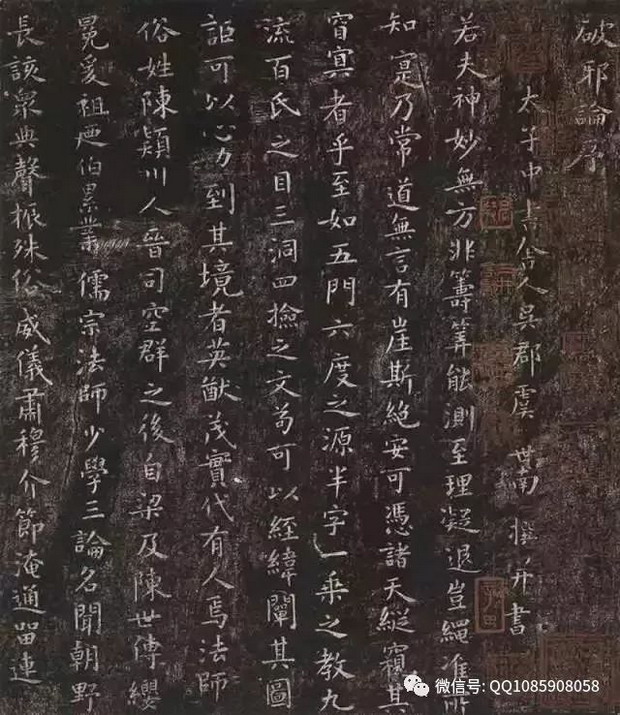 破邪論序
太子中書舍人吳郡虞世南撰并書
若夫神妙無方非籌筭能測至理凝邈豈繩准所
知寔乃常道無言有崖斯絕安可憑諸天縱窺其
窅冥者乎至如五門六度之源半字一乘之教九
流百氏之目三洞四撿之文苟可以經緯闡其圖
詎可以心力到其境者英猷茂實代有人焉法師
俗姓陳潁川人晉司空群之後自梁及陳世傳纓
冕爰祖及伯累業儒宗法師少學三論名聞朝野
長該眾典聲振殊俗威儀肅穆介節淹通留連
微信号: QQ1085908058